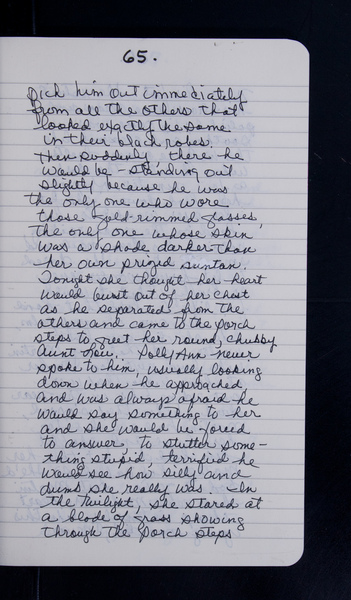 65.
Pick him out immediately
from all the others that
looked exactly the same
in their black robes.
Then suddenly, there he
would be - standing out
slightly because he was
the only one who wore
those gold-rimmed glasses,
the only one whose skin
was a shade darker than
her own prized suntan.
Tonight she thought her heart
would burst out of her chest
as he separated from the
others and came to the porch
steps to greet her round, chubby
Aunt . Polly Ann never
spoke to him, usually looking
down when he approached,
and was always afraid he
would say something to her
and she would be forced
to answer, to stutter some-
thing stupid, terrified he
would see how silly and
dumb she really was. In
the twilight, she stared at
a blade of grass showing
through the porch steps